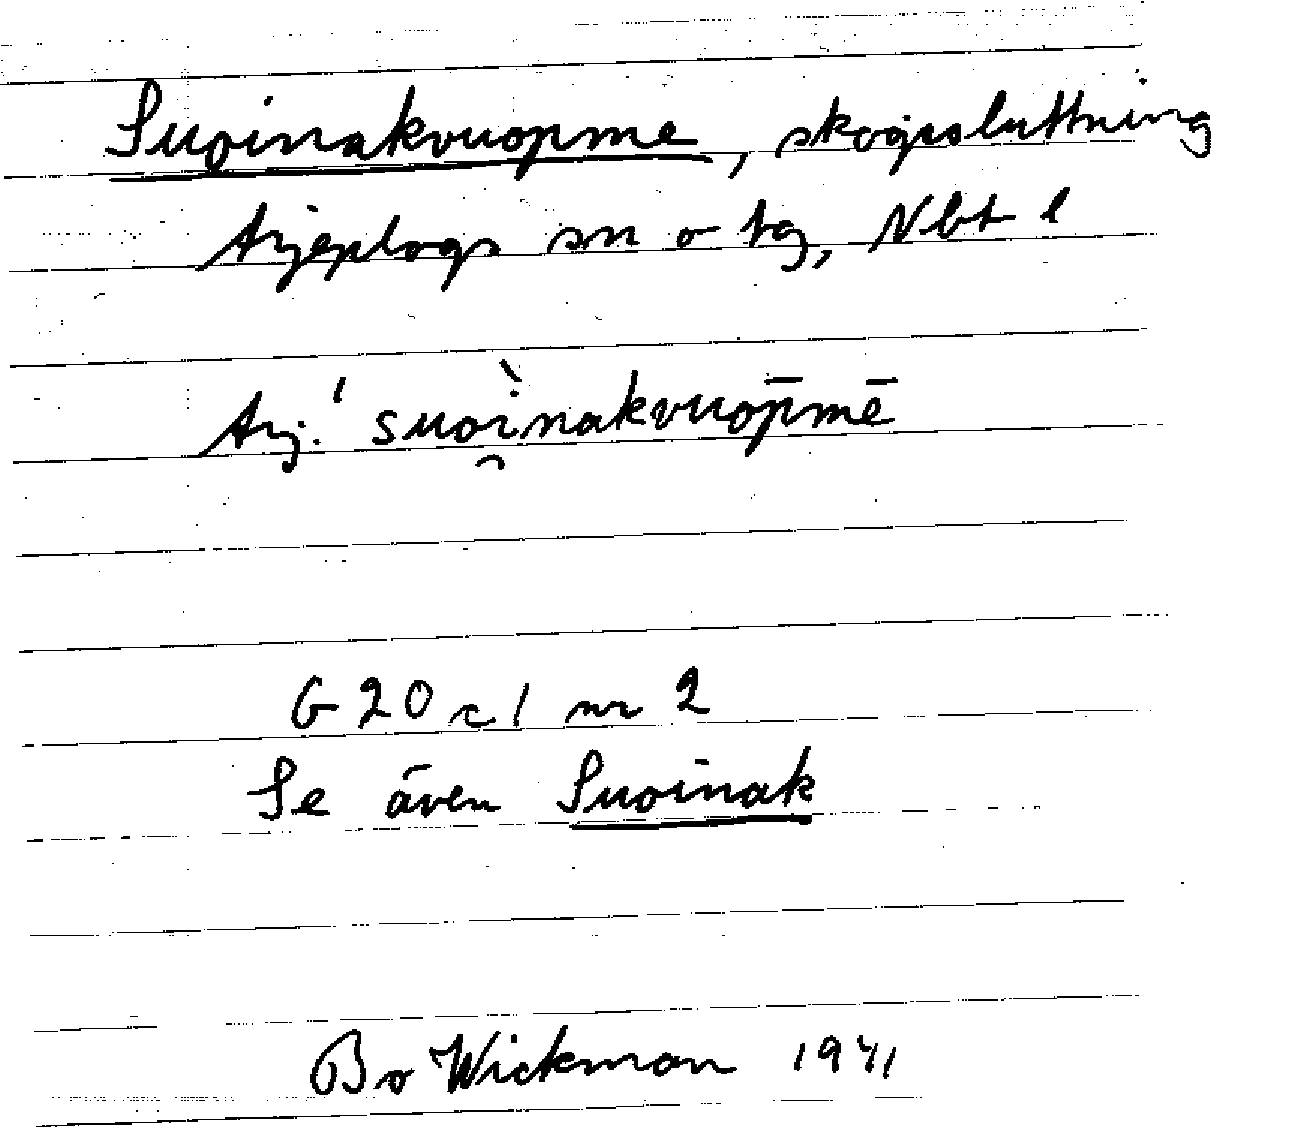 Suoinakvuopme, skogssluttning
Arjeplogs sn o tg, Nbt l
Arj. ˈsuoì̯nakvuop̄mē
G 20 c 1 nr 2
Se även Suoinak
Bo Wickman 1941